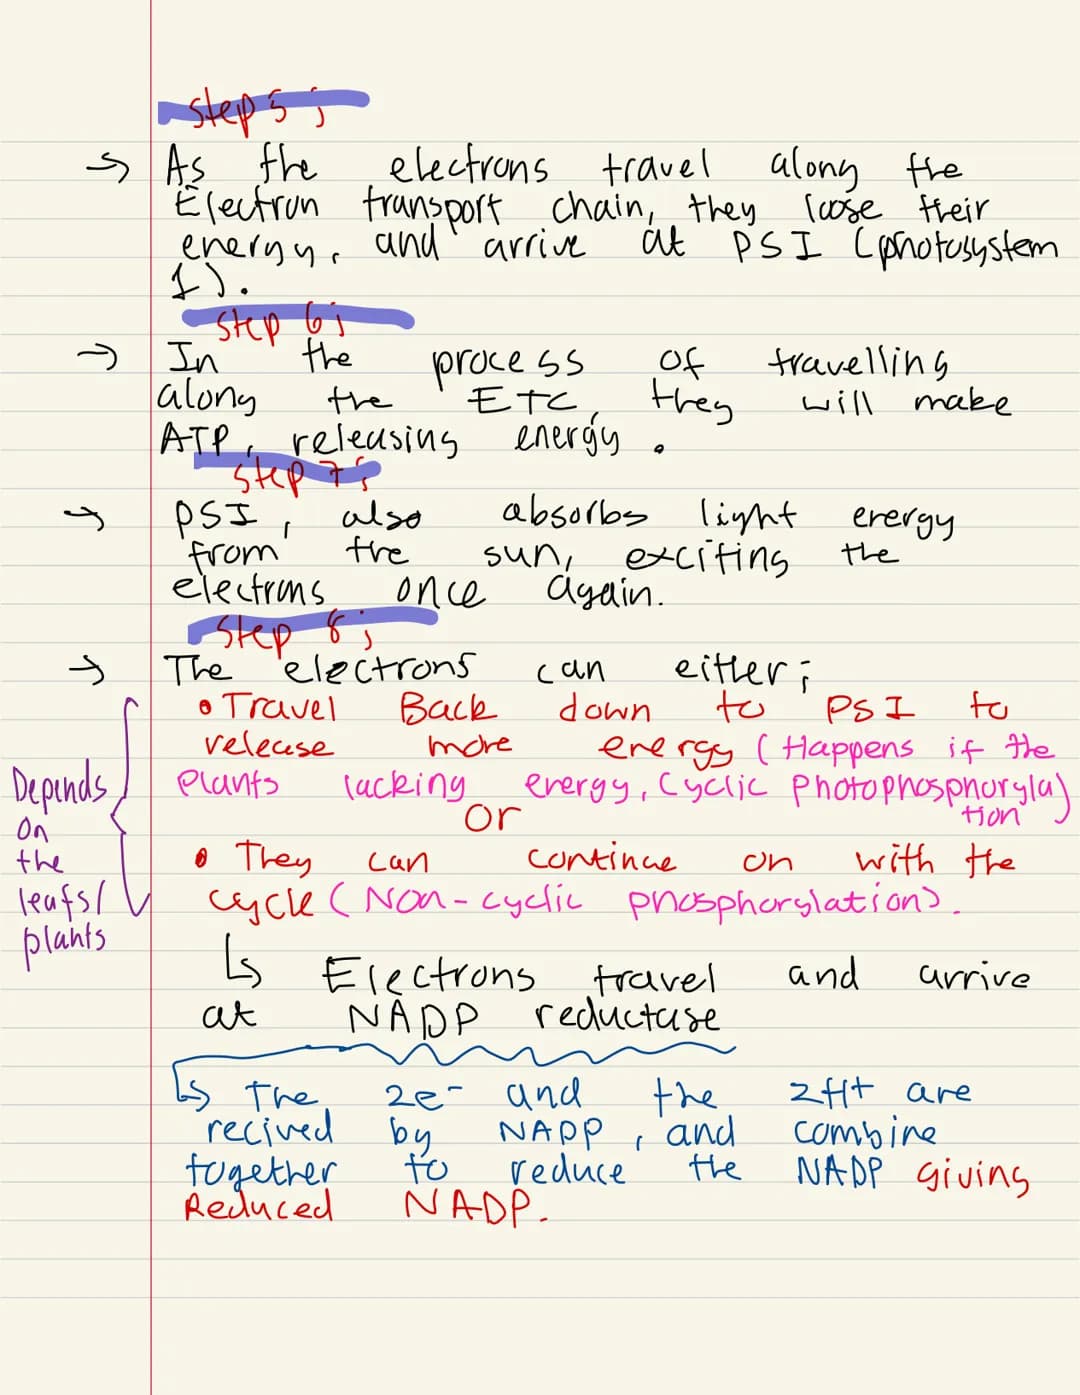 Step 5 ;
→ As the electrons travel along the
Electron transport chain, they loose their
energy, and arrive at PSI (photosystem
1).
Step 6;
→ In the process of travelling
along the ETC, they will make
ATP, releasing energy.
Step 7;
→ PSI, also absorbs light energy
from the sun, exciting the
electrons once again.
Step 8;
→ The electrons can either;
• Travel Back down to PSI to
release more energy (Happens if the
Plants lacking energy, Cyclic Photophosphoryla
tion)
or
• They can continue on with the
cycle (Non-cyclic phosphorylation).
Depends
on
the
leafs/
plants
↳ Electrons travel and arrive
at NADP reductase
↳ The 2e- and the 2H+ are
recived by NADP, and combine
together to reduce the NADP giving
Reduced NADP.